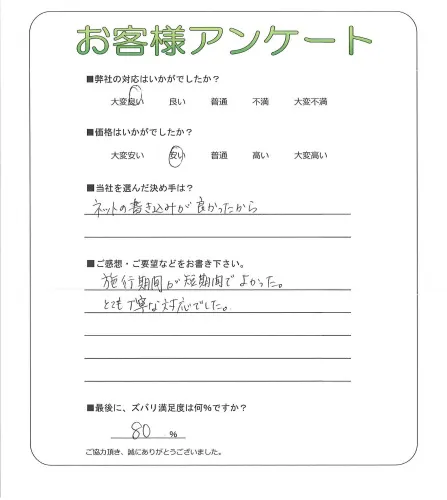 お客様アンケート
■弊社の対応はいかがでしたか？
大変良い 良い 普通 不満 大変不満
■価格はいかがでしたか？
大変安い 安い 普通 高い 大変高い
■当社を選んだ決め手は？
ネットの書き込みが良かったから
■ご感想・ご要望などをお書き下さい。
施行期間が短期間でよかった。
とても丁寧な対応でした。
■最後に、ズバリ満足度は何%ですか？
80 %
ご協力頂き、誠にありがとうございました。